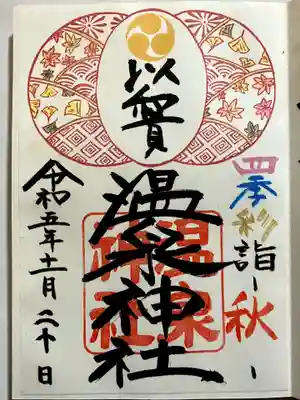 四季彩詣
ー秋ー
温泉神社
温泉
神社
令和五年十一月二十日